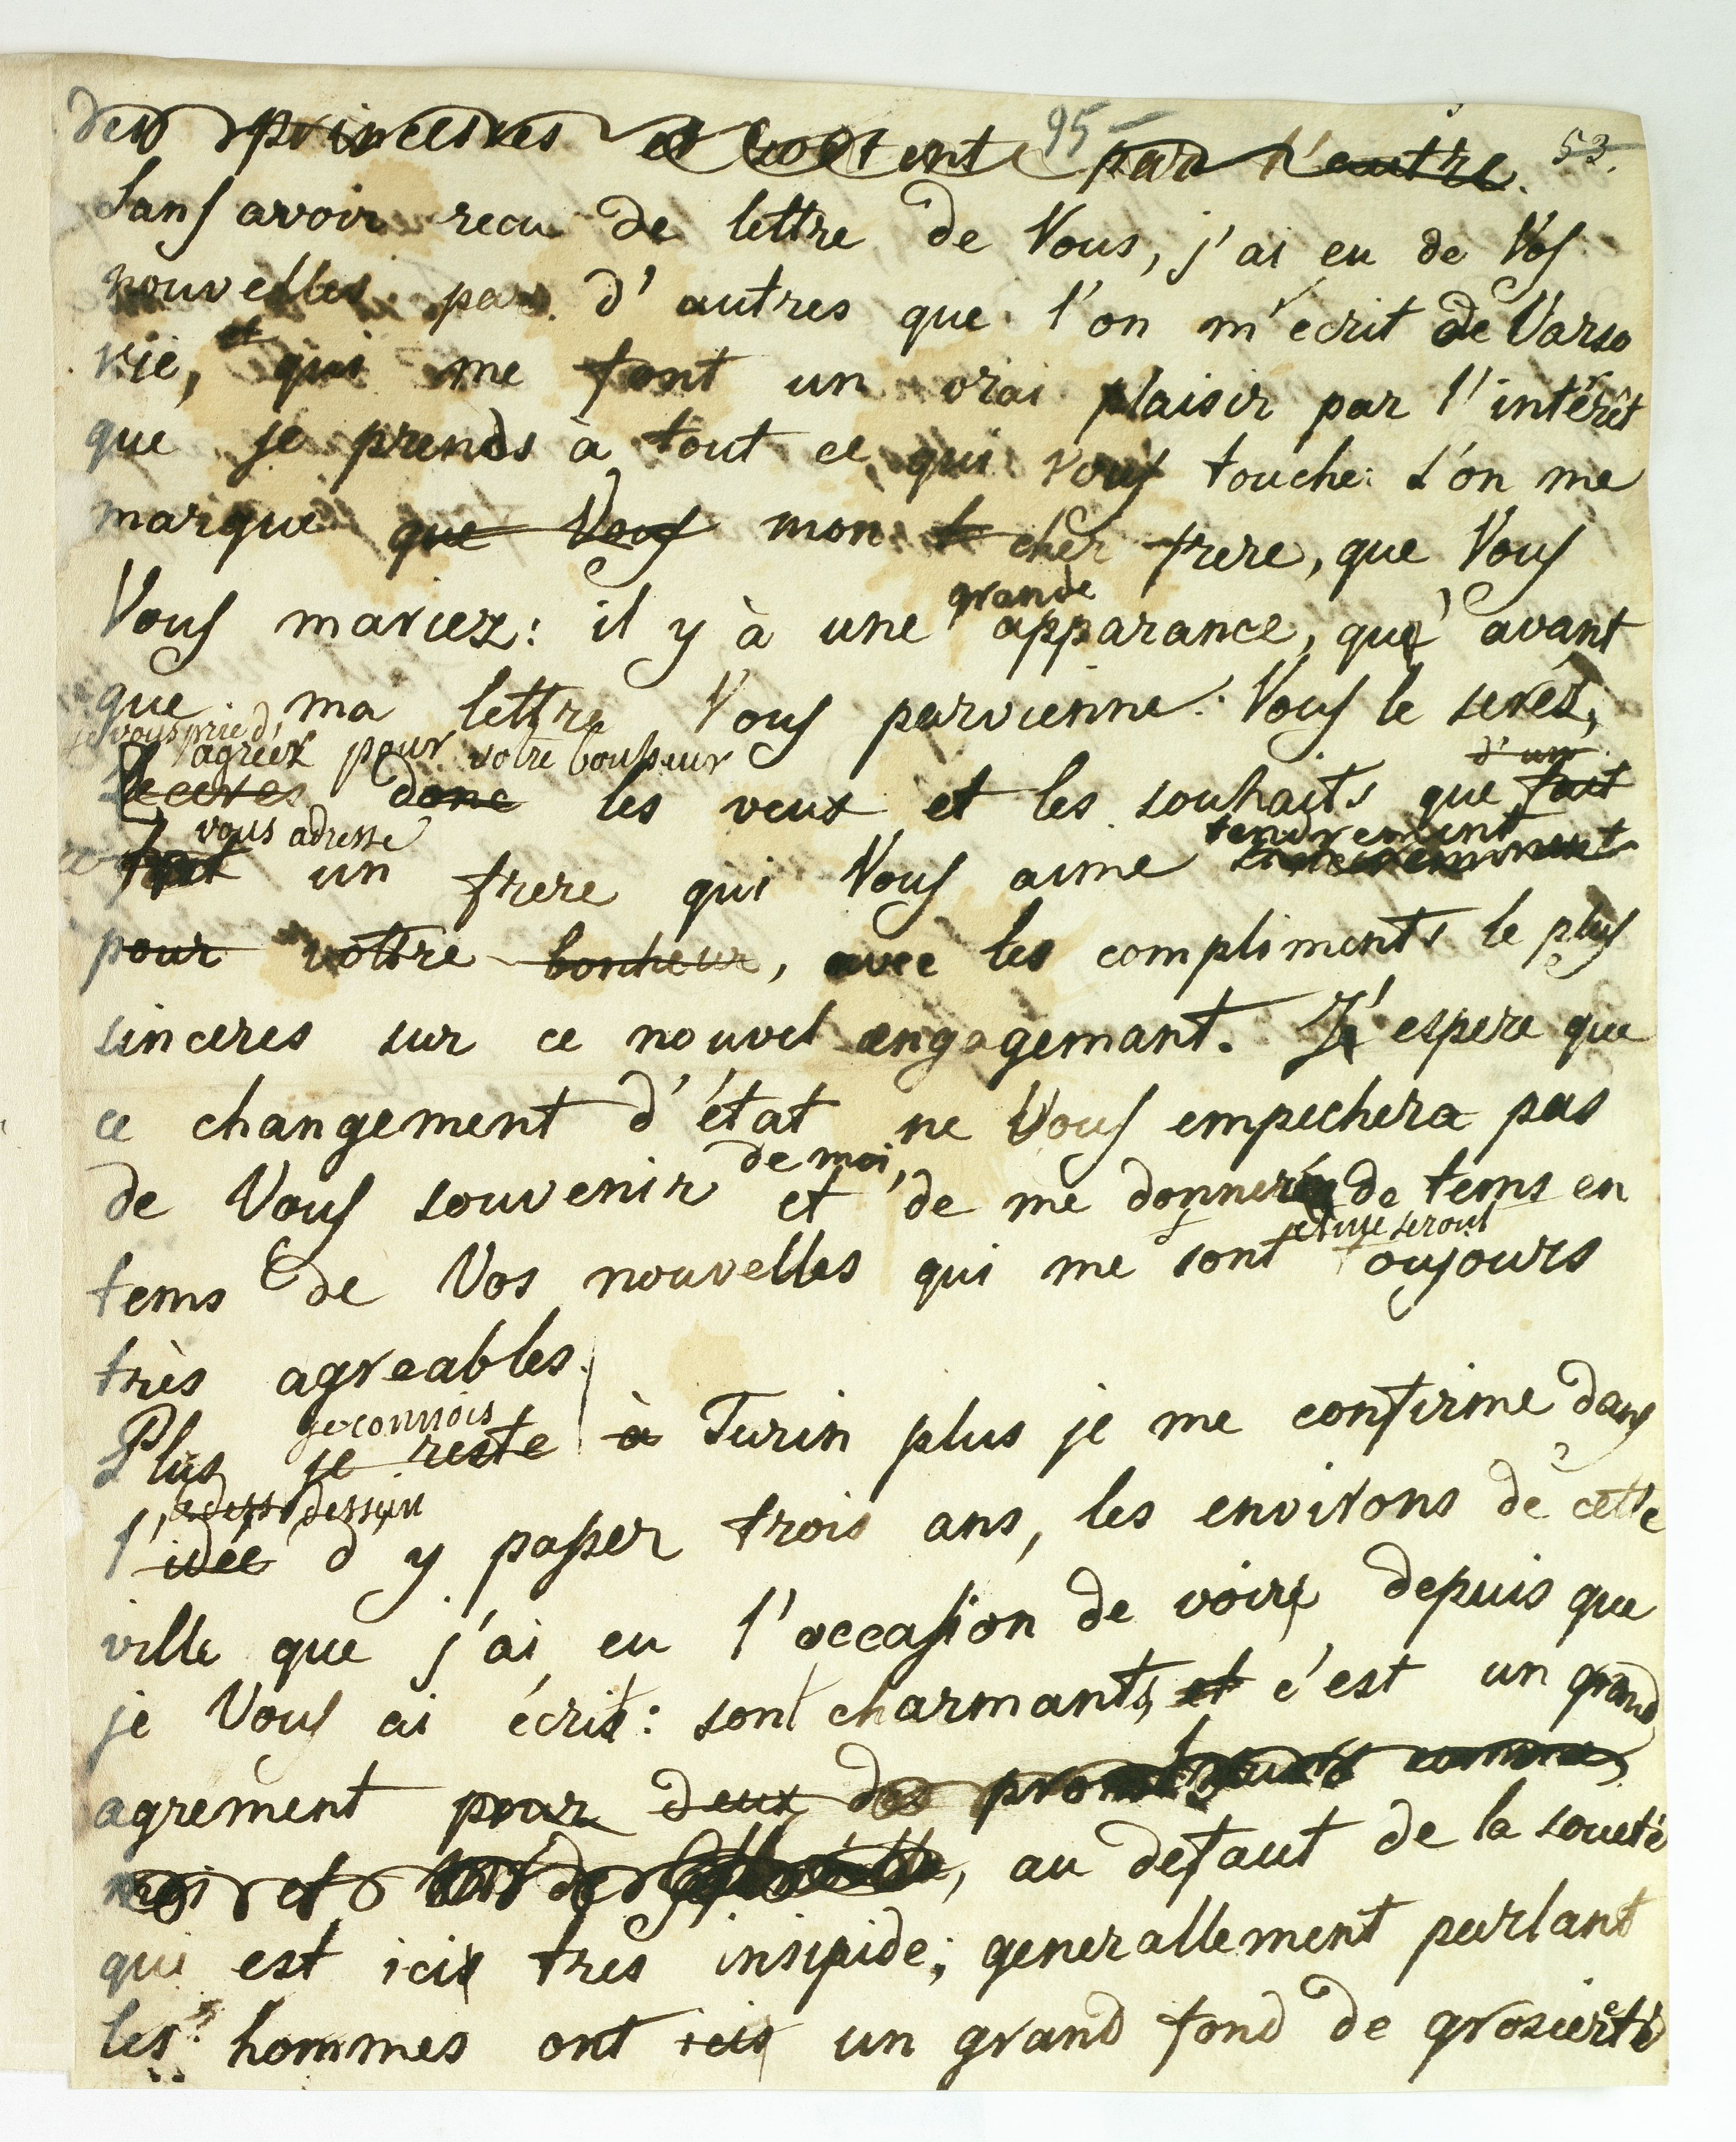 des princesses et par l'autre.
95
53.
Sans avoir recu de lettre de Vous, j'ai eu de Vos
nouvelles par d'autres que l'on m'ecrit de Varso
et
vie, qui me font un vrai plaisir par l'intérêt
que je prends à tout ce qui vous touche: l'on me
marque que Vous mon cher frere, que Vous
grande
Vous mariez: il y à une apparance, que avant
que ma lettre Vous parvienne Vous le serez,
je vous prie d'
agréer pour votre bonheur
d'un
Recevez donc les veux et les souhaits que fait
vous adresse
tendrement
fait un frere qui Vous aime
pour vottre bonheur, avec les compliments le plus
sinceres sur ce nouvel engagemant. J'espere que
ce changement d'état ne Vous empechera pas
de moi,
de Vous souvenir et de me donner de tems en
et me seront
tems de Vos nouvelles qui me sont toujours
très agreables.
je connois
Plus je reste à Turin plus je me confirme dans
le dess dessein
l'idée d'y passer trois ans, les environs de cette
ville que j'ai eu l'occasion de voire depuis que
je Vous ai écrit: sont charmants, et c'est un grand
agrement pour deux des comme
moi et , au defaut de la societé
qui est icis tres insipide; generallement parlant
les hommes ont icis un grand fond de grosierté